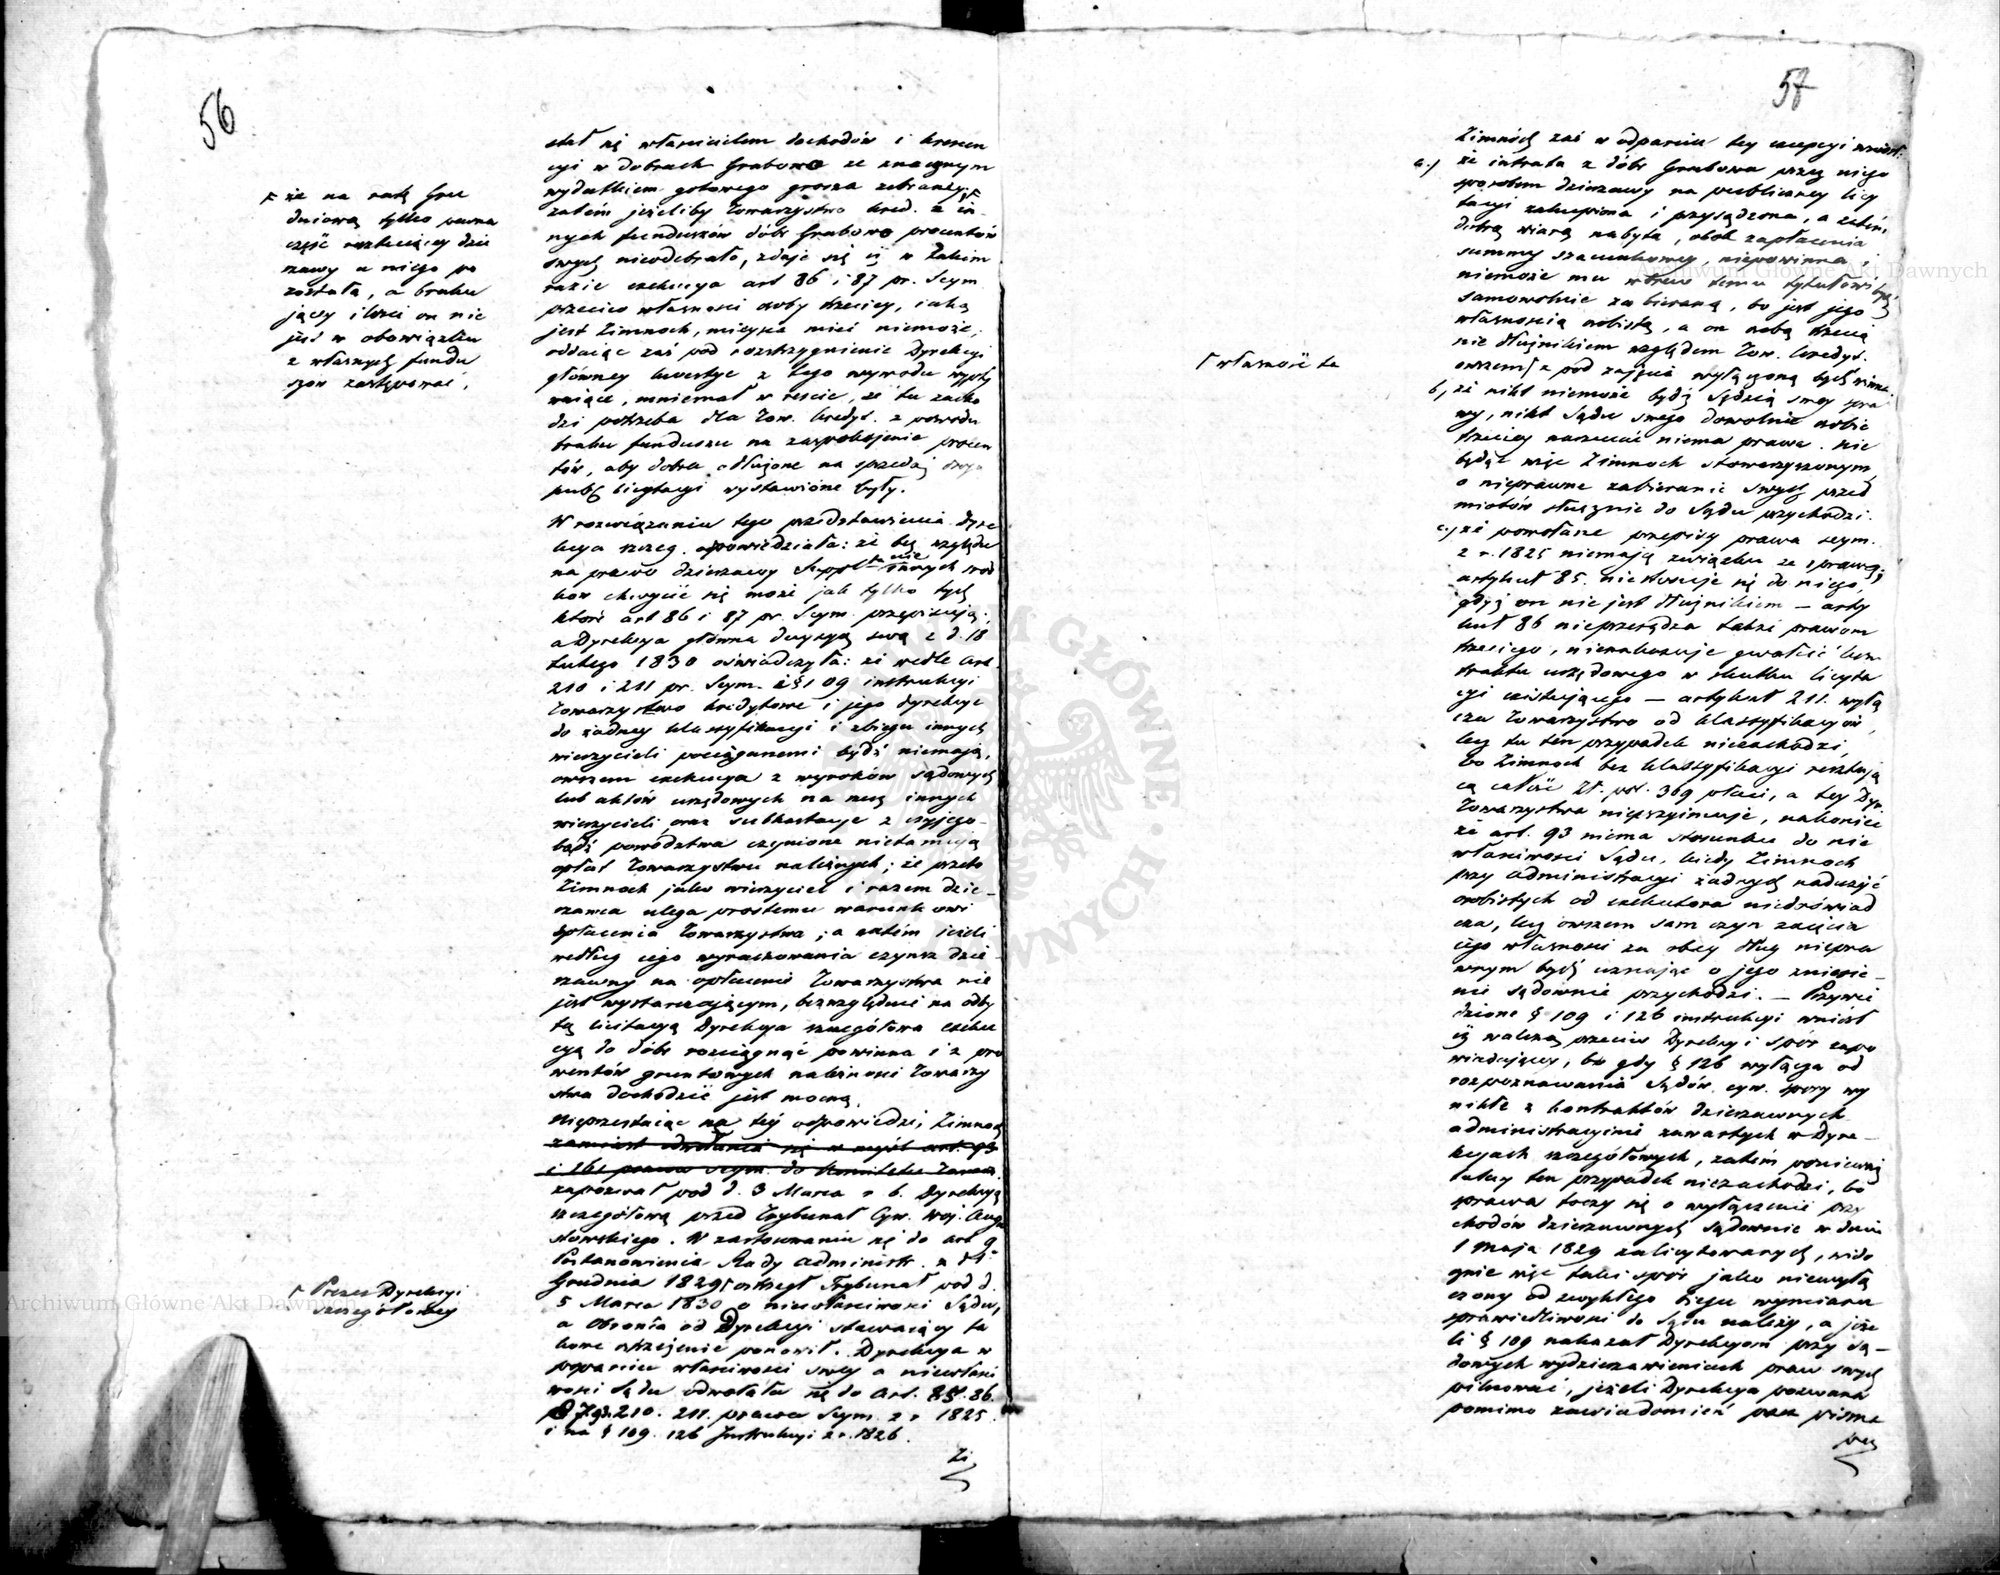 56
stał się właścicielem dochodów i kresen
cyi w dobrach Grabowo ze znacznym
wydatkiem gotowego grosza zebraney;
zatém jeżeliby Towarzystwo kred. z in-
nych funduszów dóbr Grabowo procentów
swych nieodebrało, zdaje się iż w takim
razie exekucya art 86 i 87 pr. Seym
przeciw własności osoby trzeciey, iaką
jest Zimnoch, mieysca mieć niemoże;
oddaiąc zaś pod rozstrzygnienie Dyrekcyi
główney kwestye z tego wywodu wypły
waiące, mniemał w reście, że tu zacho
dzi potrzeba dla Tow. kredyt. z powodu
braku funduszu na zaspokojenie procen
tów, aby dobra odłużone na sprzedaż drogą
publ licytacyi wystawione były.
W rozwiązaniu tego przedstawienia Dyre
kcya szczeg. odpowiedziała: że bez względu
na prawo dzierżawy Suppl nie innych środ
ków chwycić się może jak tylko tych
które art 86 i 87 pr. Seym. przepisują;
a Dyrekcya główna decyzyą swą z d. 18
Lutego 1830 oświadczyła: że wedle art.
210 i 211 pr. Seym. i § 109 instrukcyi
Towarzystwo kredytowe i jego dyrekcye
do żadney klassyfikacyi i zbiegu innych
wierzycieli pociąganemi bydź niemają,
owszem exekucya z wyroków sądowych
lub aktów urzędowych na rzecz innych
wierzycieli oraz subhastacye z czyjego-
bądź powództwa czynione nietamują
opłat Towarzystwu należnych; że przeto
Zimnoch jako wierzyciel i razem dzie-
rżawca ulega prostemu warunkowi
opłacenia Towarzystwa; a zatém jeżeli
według jego wyrachowania czynsz dzie-
rżawny na opłacenie Towarzystwa nie
jest wystarczającym, bezwzględnie na odby
tą licitacyą Dyrekcya szczegółowa exeku
cyą do dóbr rozciągnąć powinna i z pro
wentów gruntowych należności Towarzy
stwa dochodzić jest mocną.
Nieprzestaiąc na téy odpowiedzi, Zimnoch
zamiast odwołania się w myśl art. 93
i 161 prawa Seym. do Komitetu Towarz.
zapozwał pod d. 3 Marca r b. Dyrekcyą
szczegółową przed Trybunał Cyw. Woj. Augu
stowskiego. W zastosowaniu się do art 9
Postanowienia Rady Administr. z d
Grudnia 1829 ostrzegł Trybunał pod d.
5 Marca 1830 o niewłaściwości Sądu,
a Obrońca od Dyrekcyi stawaiący ta
kowe ostrzeżenie ponowił. Dyrekcya w
poparciu właściwości swey a niewłaści
wości Sądu odwołała się do Art. 85. 86.
87. 93. 210. 211. prawa Seym. z r 1825.
i na § 109. 126 Instrukcyi z r. 1826.
Zi
że na ratę Gru
dniową tylko pewna
część resztuiącey dzie
rżawy u niego po
została, a braku
jącey ilości on nie
jest w obowiązku
z własnych fundu
szów zastępować,
Prezes Dyrekcyi
szczegółowey
57
Zimnoch zaś w odparciu tey excepcyi wniósł:
a.) że intrata z dóbr Grabowa przez niego
sposobem dzierżawy na publiczney licy
tacyi zakupiona i przysądzona, a zatém
dobrą wiarą nabyta, obok zapłacenia
summy szacunkowey, niepowinna i
niemoże mu wbrew temu tytułowi bydź
samowolnie zabieraną, bo jest jego
własnością osobistą, a on osobą trzecią
nie dłużnikiem względem Tow. kredyt.
owszem z pod zajęcia wyłączoną bydź winna.
własność ta
b, że nikt niemoże bydź Sędzią swey spra
wy, nikt Sądu swego dowolnie osobie
trzeciey narzucać niema prawa. nie
będąc więc Zimnoch stowarzyszonym,
o nieprawne zabieranie swych przed
miotów słusznie do Sądu przychodzi.
c.) że powołane przepisy prawa seym.
z r. 1825 niemają związku ze sprawą;
artykuł 85. niestosuje się do niego,
gdyż on nie jest dłużnikiem – arty
kuł 86 nieprzesądza także prawom
trzeciego, nienakazuje gwałcić kon
traktu urzędowego w skutku licyta
cyi existującego – artykuł 211. wyłą
cza Towarzystwo od klassyfikacyów,
lecz tu ten przypadek niezachodzi,
bo Zimnoch bez klassyfikacyi resztują
cą całość Zł. pol. 369 płaci, a tey Dyr.
Towarzystwa nieprzyimuje, nakoniec
że art. 93 niema stosunku do nie
właściwości Sądu, kiedy Zimnoch
przy administracyi żadnych nadużyć
osobistych od exekutora niedoświad
cza, lecz owszem sam czyn zajęcia
jego własności za obcy dług niepra
wnym bydź uznając o jego zniesie-
nie sądownie przychodzi. – Przywie
dzione § 109 i 126 instrukcyi wniósł
iż walczą przeciw Dyrekcyi spór zapo
wiadającey, bo gdy § 126 wyłącza od
rozpoznawania Sądów cyw. spory wy
nikłe z kontraktów dzierżawnych
administracyinie zawartych w Dyre-
kcyach szczegółowych, zatém ponieważ
tutay ten przypadek niezachodzi, bo
sprawa toczy się o wyłączenie przy
chodów dzierżawnych sądownie w dniu
1 Maja 1829 zalicytowanych, wido
cznie więc taki spór jako niewyłą
czony od zwykłego biegu wymiaru
sprawiedliwości do Sądu należy, a jeże
li § 109 nakazał Dyrekcyom przy są-
dowych wydzierżawieniach praw swych
pilnować, jeżeli Dyrekcya pozwana
pomimo zawiadomień przez pisma
przez